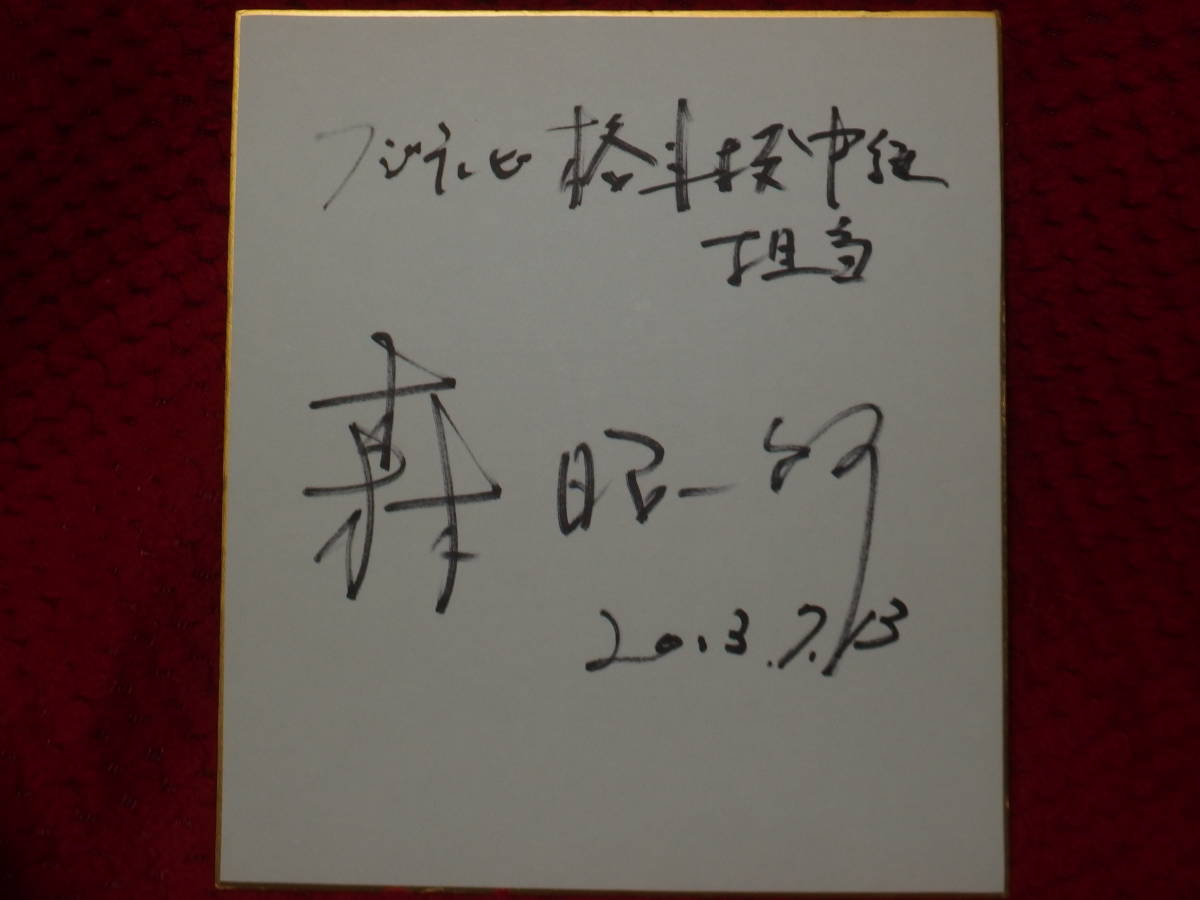 フジテレビ 格斗技中継
担当
森 昭一郎
2013.7.13